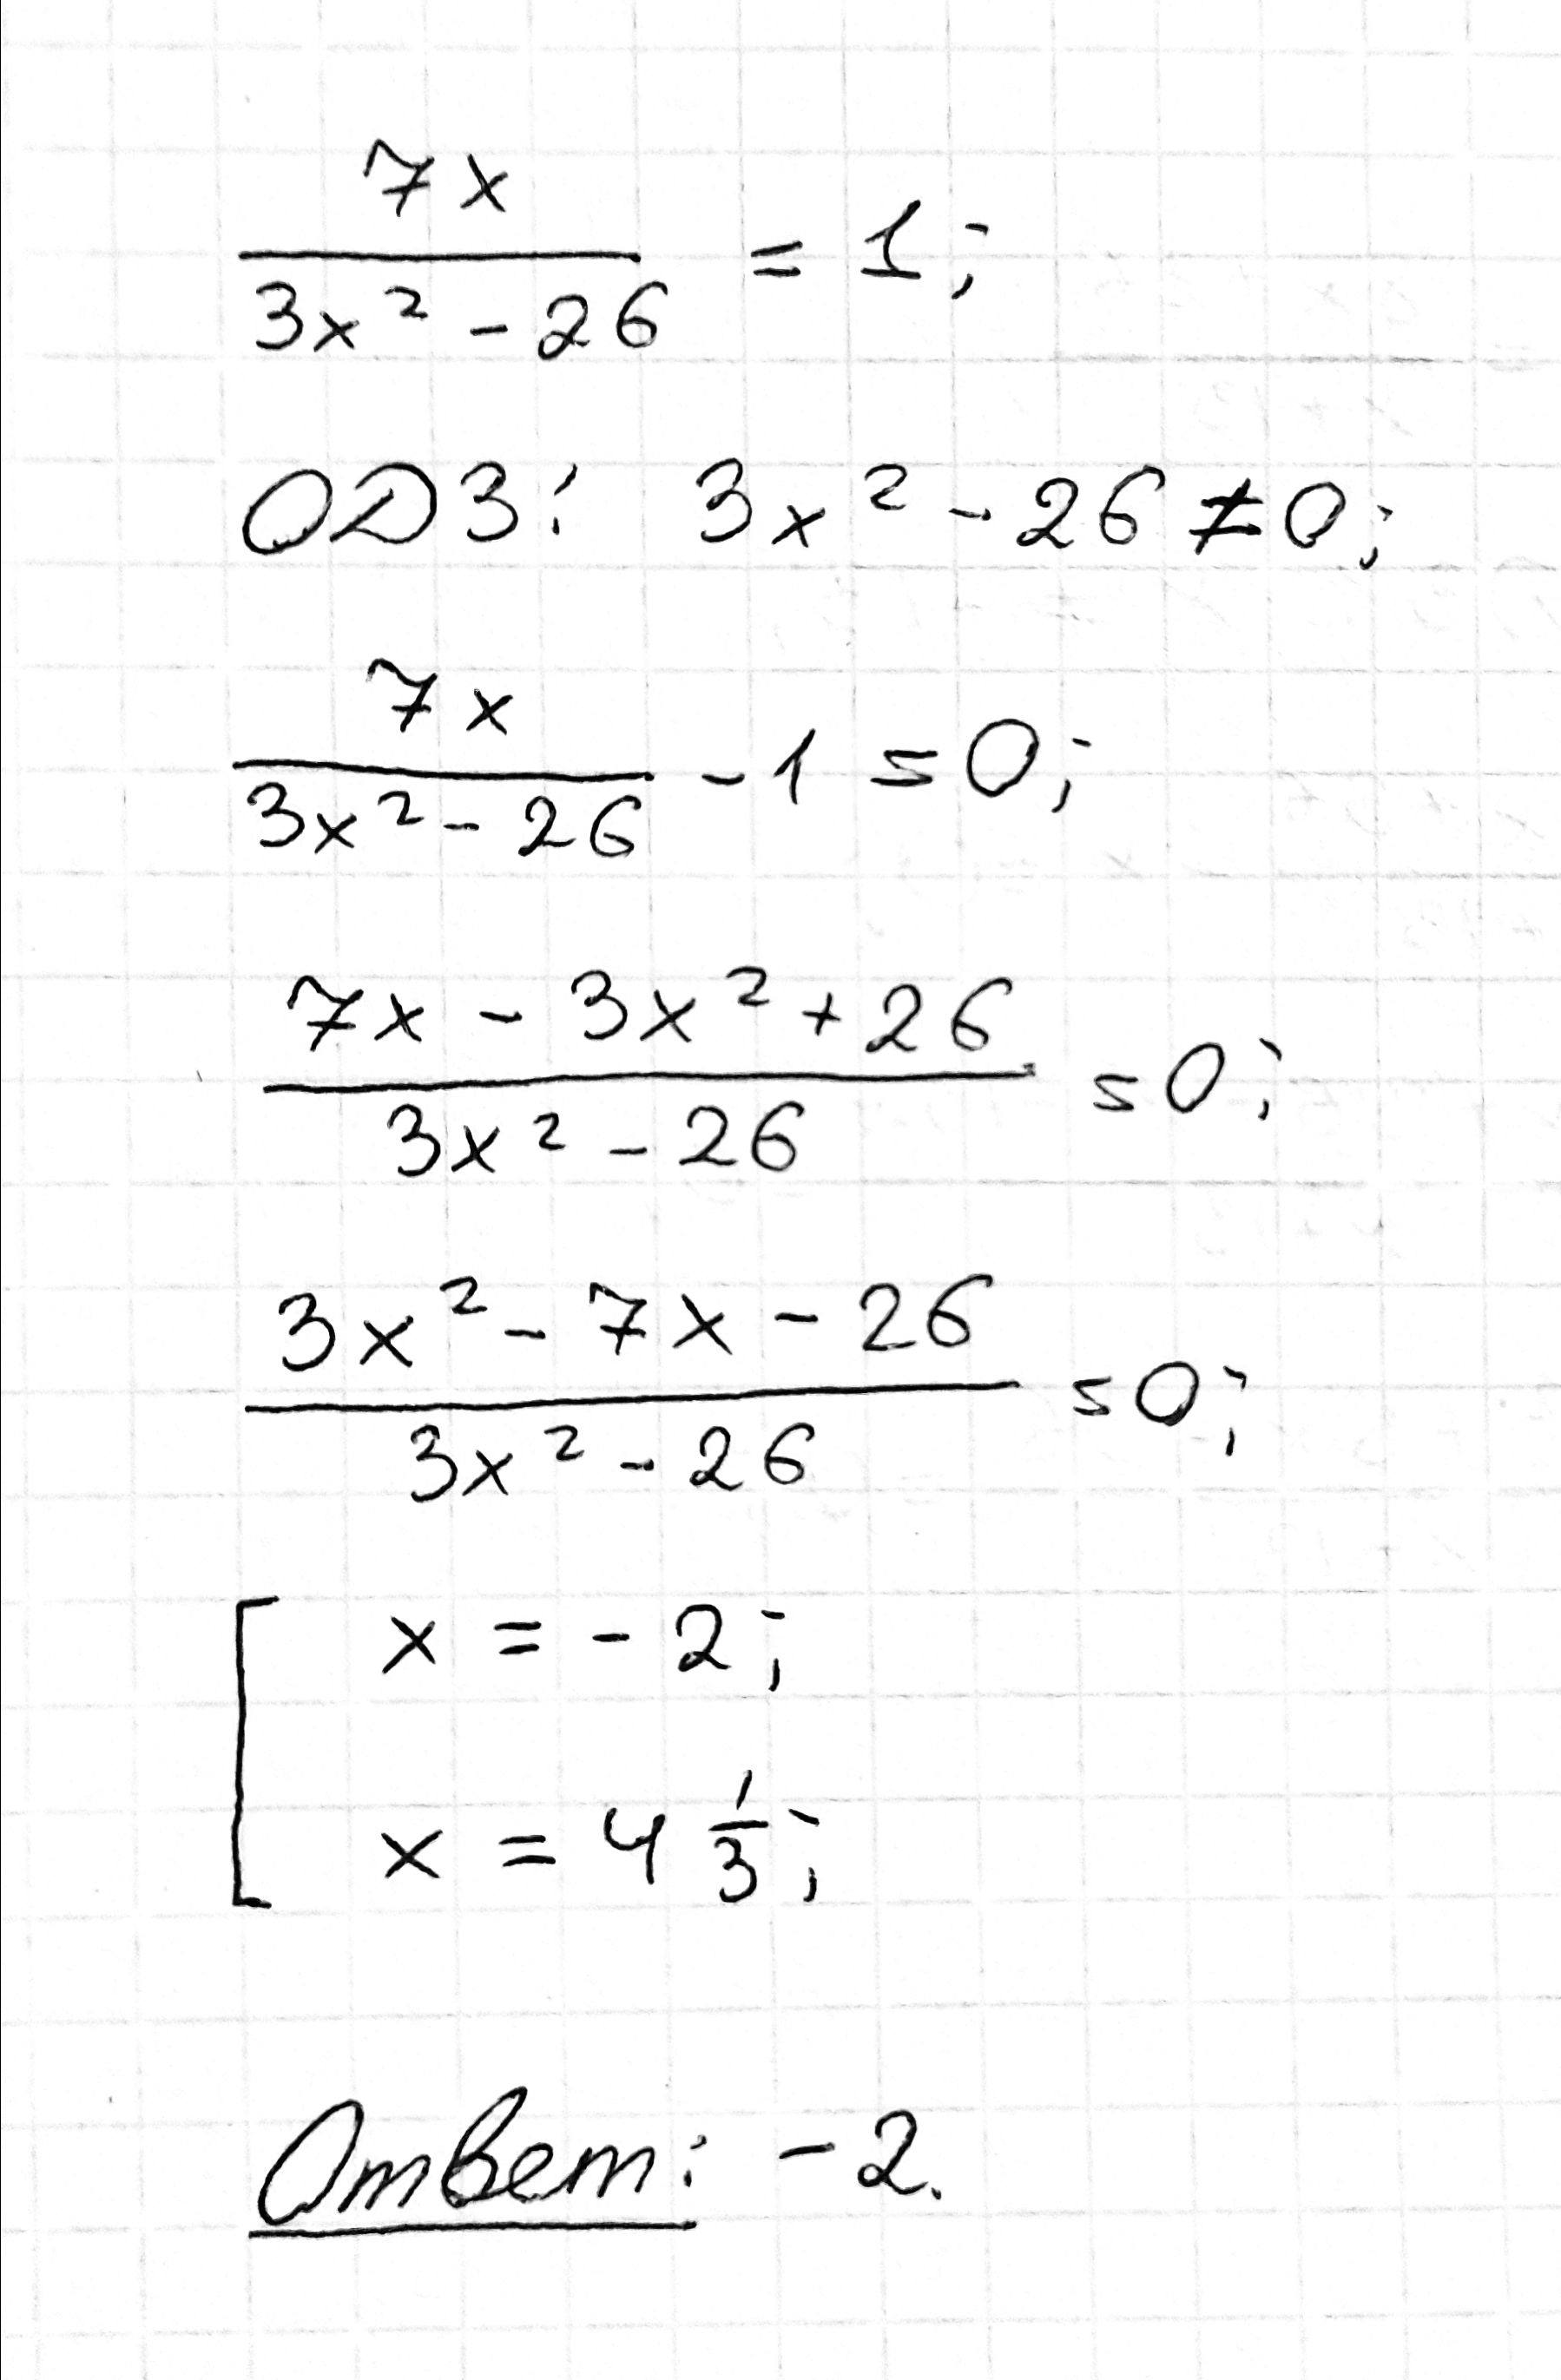 7x / (3x² - 26) = 1;
ОДЗ: 3x² - 26 ≠ 0;
7x / (3x² - 26) - 1 = 0;
(7x - 3x² + 26) / (3x² - 26) = 0;
(3x² - 7x - 26) / (3x² - 26) = 0;
[ x = -2;
x = 4 1/3;
Ответ: -2.